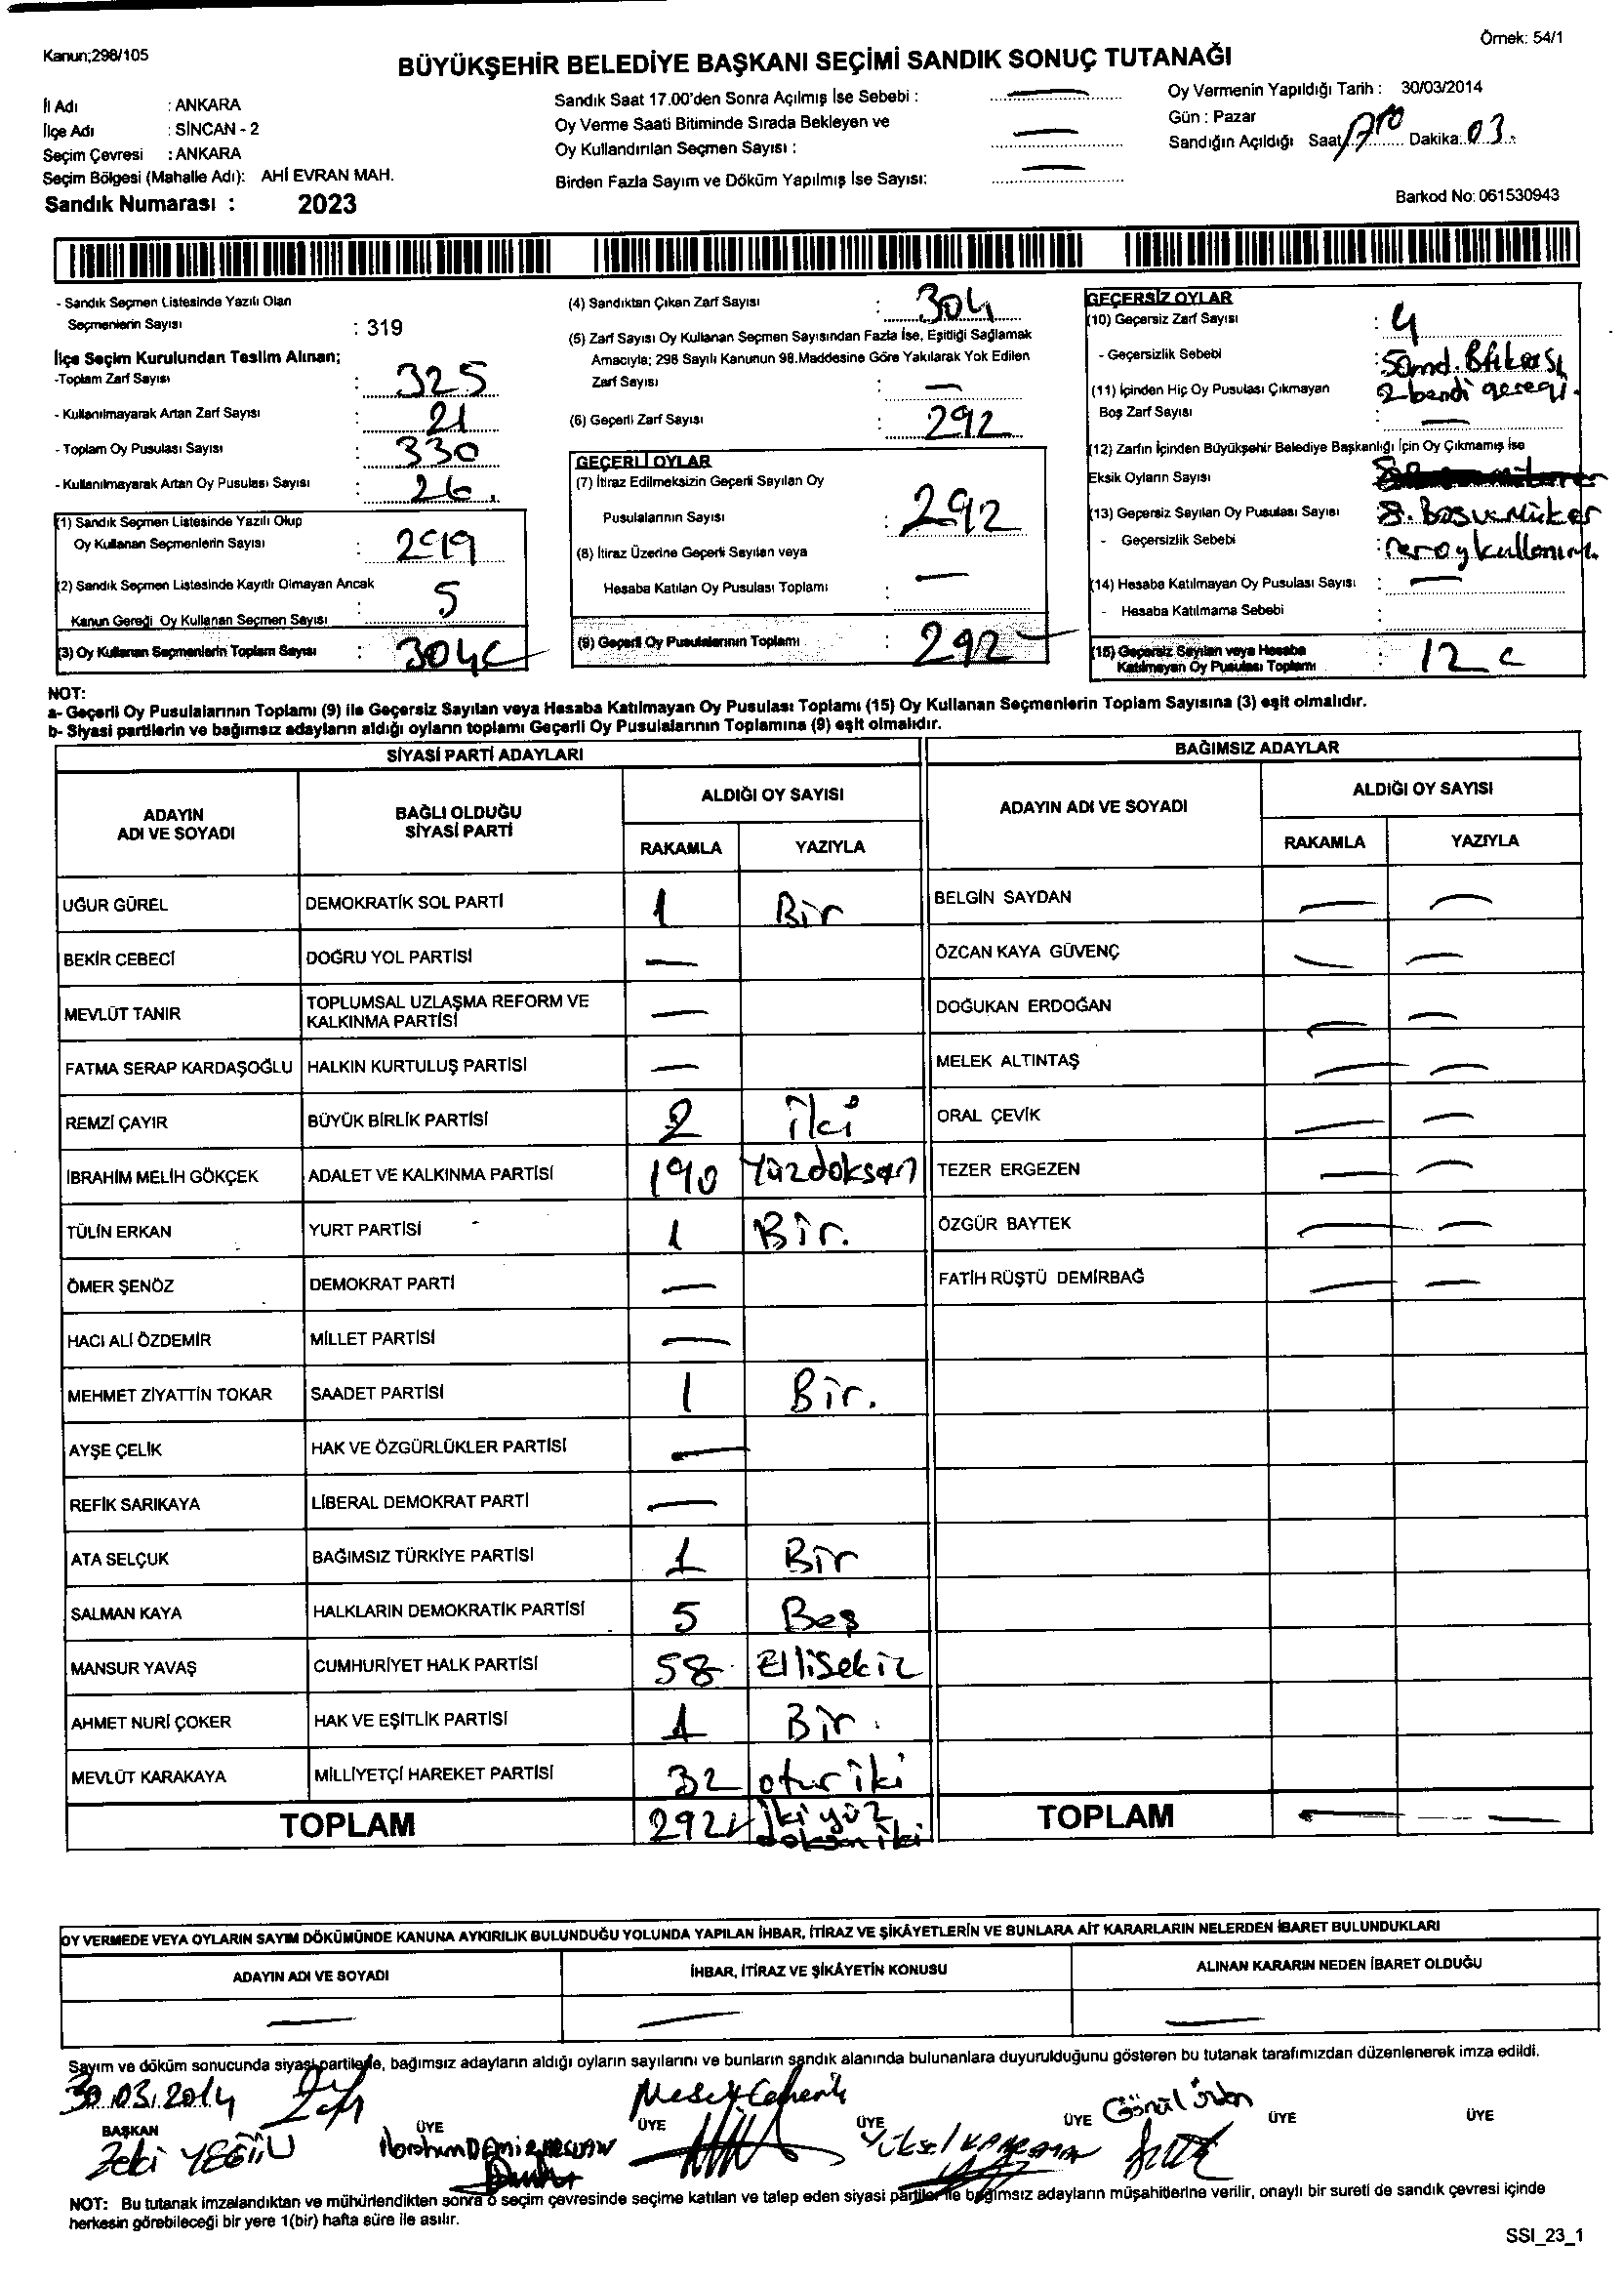 Kanun;298/105
Örnek: 54/1
BÜYÜKŞEHİR BELEDİYE BAŞKANI SEÇİMİ SANDIK SONUÇ TUTANAĞI
İl Adı : ANKARA
İlçe Adı : SİNCAN - 2
Seçim Çevresi : ANKARA
Seçim Bölgesi (Mahalle Adı): AHİ EVRAN MAH.
Sandık Numarası : 2023
Sandık Saat 17.00'den Sonra Açılmış İse Sebebi : —
Oy Verme Saati Bitiminde Sırada Bekleyen ve
Oy Kullandırılan Seçmen Sayısı : —
Birden Fazla Sayım ve Döküm Yapılmış İse Sayısı: —
Oy Vermenin Yapıldığı Tarih : 30/03/2014
Gün : Pazar
Sandığın Açıldığı Saat Dakika: 03
Barkod No: 061530943
- Sandık Seçmen Listesinde Yazılı Olan
Seçmenlerin Sayısı : 319
İlçe Seçim Kurulundan Teslim Alınan;
-Toplam Zarf Sayısı : 325
- Kullanılmayarak Artan Zarf Sayısı : 21
- Toplam Oy Pusulası Sayısı : 330
- Kullanılmayarak Artan Oy Pusulası Sayısı : 26.
(1) Sandık Seçmen Listesinde Yazılı Olup
Oy Kullanan Seçmenlerin Sayısı : 299
(2) Sandık Seçmen Listesinde Kayıtlı Olmayan Ancak
Kanun Gereği Oy Kullanan Seçmen Sayısı : 5
(3) Oy Kullanan Seçmenlerin Toplam Sayısı : 304
(4) Sandıktan Çıkan Zarf Sayısı : 304
(5) Zarf Sayısı Oy Kullanan Seçmen Sayısından Fazla İse, Eşitliği Sağlamak
Amacıyla; 298 Sayılı Kanunun 98.Maddesine Göre Yakılarak Yok Edilen
Zarf Sayısı : —
(6) Geçerli Zarf Sayısı : 292
GEÇERLİ OYLAR
(7) İtiraz Edilmeksizin Geçerli Sayılan Oy
Pusulalarının Sayısı : 292
(8) İtiraz Üzerine Geçerli Sayılan veya
Hesaba Katılan Oy Pusulası Toplamı : —
(9) Geçerli Oy Pusulalarının Toplamı : 292
GEÇERSİZ OYLAR
(10) Geçersiz Zarf Sayısı : 4
- Geçersizlik Sebebi :
2 bendi gereği.
(11) İçinden Hiç Oy Pusulası Çıkmayan
Boş Zarf Sayısı : —
(12) Zarfın İçinden Büyükşehir Belediye Başkanlığı İçin Oy Çıkmamış İse
Eksik Oyların Sayısı
(13) Geçersiz Sayılan Oy Pusulası Sayısı : 8. Boş ve Müker
- Geçersizlik Sebebi : rer oy kullanım.
(14) Hesaba Katılmayan Oy Pusulası Sayısı : —
- Hesaba Katılmama Sebebi :
(15) Geçersiz Sayılan veya Hesaba
Katılmayan Oy Pusulası Toplamı : 12
NOT:
a- Geçerli Oy Pusulalarının Toplamı (9) ile Geçersiz Sayılan veya Hesaba Katılmayan Oy Pusulası Toplamı (15) Oy Kullanan Seçmenlerin Toplam Sayısına (3) eşit olmalıdır.
b- Siyasi partilerin ve bağımsız adayların aldığı oyların toplamı Geçerli Oy Pusulalarının Toplamına (9) eşit olmalıdır.
SİYASİ PARTİ ADAYLARI
ADAYIN ADI VE SOYADI BAĞLI OLDUĞU SİYASİ PARTİ ALDIĞI OY SAYISI
RAKAMLA YAZIYLA
UĞUR GÜREL DEMOKRATİK SOL PARTİ 1 Bir
BEKİR CEBECİ DOĞRU YOL PARTİSİ —
MEVLÜT TANIR TOPLUMSAL UZLAŞMA REFORM VE KALKINMA PARTİSİ —
FATMA SERAP KARDAŞOĞLU HALKIN KURTULUŞ PARTİSİ —
REMZİ ÇAYIR BÜYÜK BİRLİK PARTİSİ 2 İki
İBRAHİM MELİH GÖKÇEK ADALET VE KALKINMA PARTİSİ 190 Yüzdoksan
TÜLİN ERKAN YURT PARTİSİ 1 Bir.
ÖMER ŞENÖZ DEMOKRAT PARTİ —
HACI ALİ ÖZDEMİR MİLLET PARTİSİ —
MEHMET ZİYATTİN TOKAR SAADET PARTİSİ 1 Bir.
AYŞE ÇELİK HAK VE ÖZGÜRLÜKLER PARTİSİ —
REFİK SARIKAYA LİBERAL DEMOKRAT PARTİ —
ATA SELÇUK BAĞIMSIZ TÜRKİYE PARTİSİ 1 Bir
SALMAN KAYA HALKLARIN DEMOKRATİK PARTİSİ 5 Beş
MANSUR YAVAŞ CUMHURİYET HALK PARTİSİ 58 Ellisekiz
AHMET NURİ ÇOKER HAK VE EŞİTLİK PARTİSİ 1 Bir.
MEVLÜT KARAKAYA MİLLİYETÇİ HAREKET PARTİSİ 32 otuz iki
TOPLAM 292 İki yüz doksan iki
BAĞIMSIZ ADAYLAR
ADAYIN ADI VE SOYADI ALDIĞI OY SAYISI
RAKAMLA YAZIYLA
BELGİN SAYDAN — —
ÖZCAN KAYA GÜVENÇ — —
DOĞUKAN ERDOĞAN — —
MELEK ALTINTAŞ — —
ORAL ÇEVİK — —
TEZER ERGEZEN — —
ÖZGÜR BAYTEK — —
FATİH RÜŞTÜ DEMİRBAĞ — —
TOPLAM — —
OY VERMEDE VEYA OYLARIN SAYIM DÖKÜMÜNDE KANUNA AYKIRILIK BULUNDUĞU YOLUNDA YAPILAN İHBAR, İTİRAZ VE ŞİKÂYETLERİN VE BUNLARA AİT KARARLARIN NELERDEN İBARET BULUNDUKLARI
ADAYIN ADI VE SOYADI İHBAR, İTİRAZ VE ŞİKÂYETİN KONUSU ALINAN KARARIN NEDEN İBARET OLDUĞU
— — —
Sayım ve döküm sonucunda siyasi partilerle, bağımsız adayların aldığı oyların sayılarını ve bunların sandık alanında bulunanlara duyurulduğunu gösteren bu tutanak tarafımızdan düzenlenerek imza edildi.
30.03.2014
BAŞKAN ÜYE ÜYE ÜYE ÜYE ÜYE ÜYE
Zeki
NOT: Bu tutanak imzalandıktan ve mühürlendikten sonra o seçim çevresinde seçime katılan ve talep eden siyasi partiler ile bağımsız adayların müşahitlerine verilir, onaylı bir sureti de sandık çevresi içinde
herkesin görebileceği bir yere 1(bir) hafta süre ile asılır.
SSI_23_1